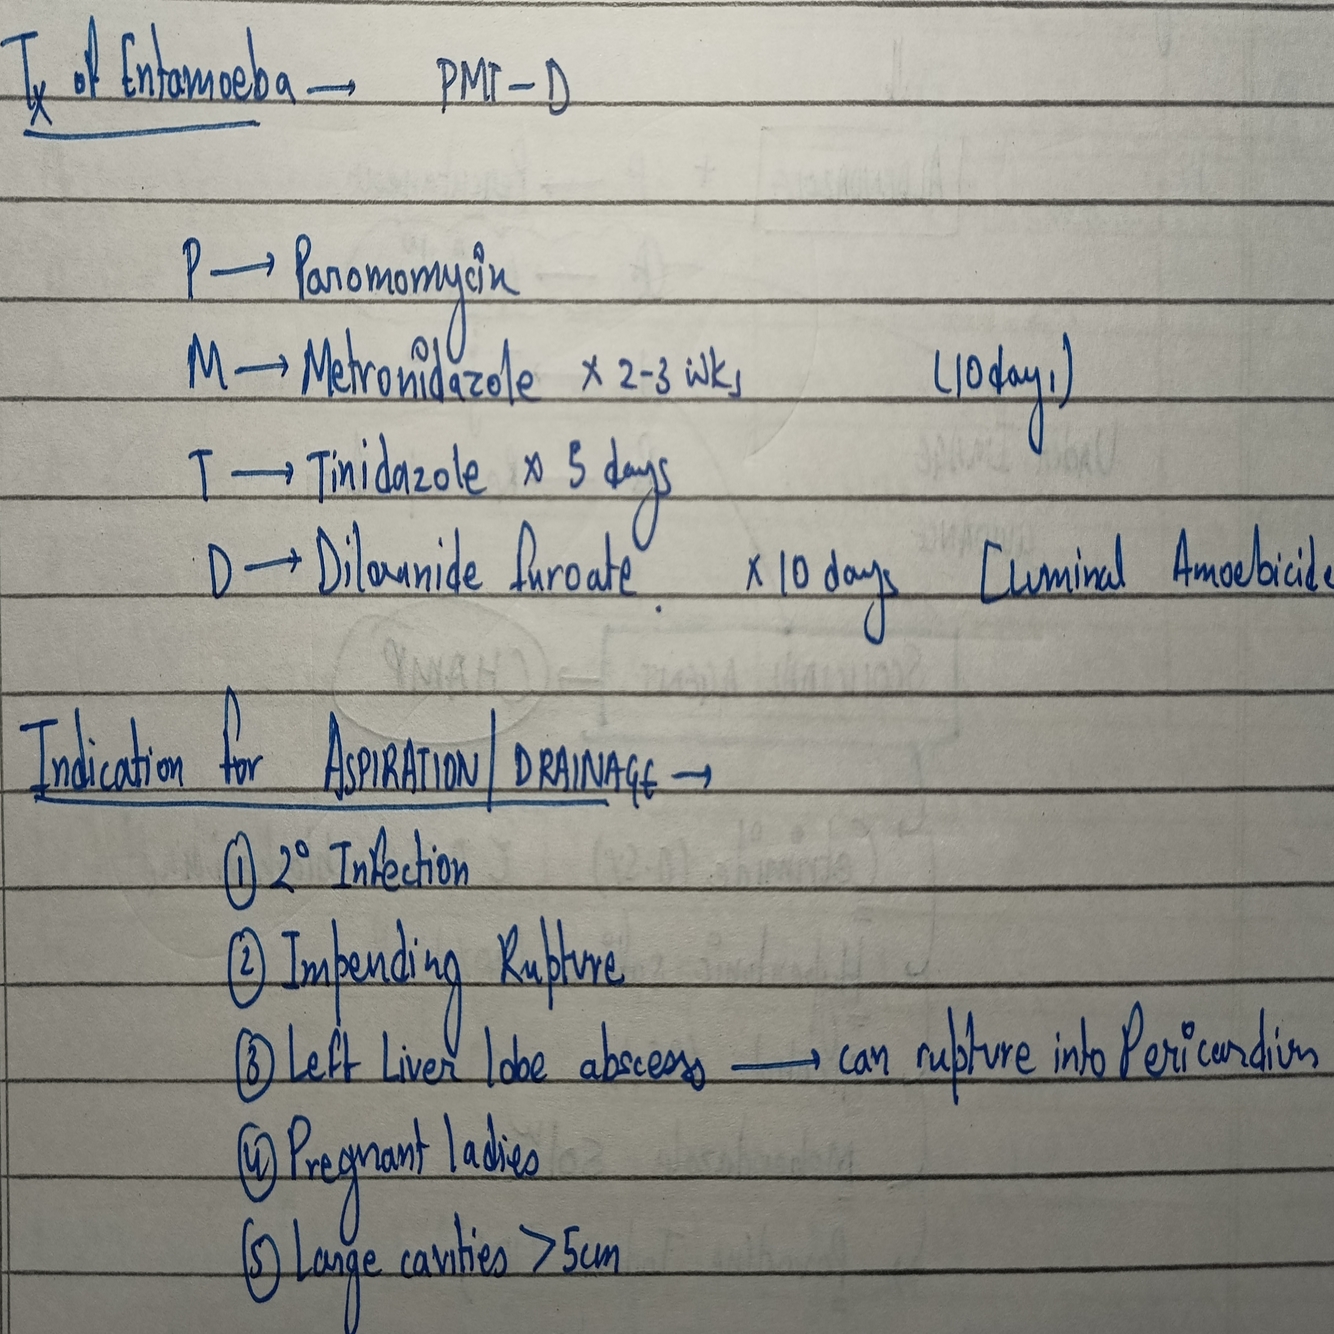 Tx of Entamoeba → PMT-D
P → Paromomycin
M → Metronidazole x 2-3 wks (10 days)
T → Tinidazole x 5 days
D → Diloxanide furoate. x 10 days [Luminal Amoebicide
Indication for ASPIRATION/DRAINAGE →
① 2° Infection
② Impending Rupture
③ Left Liver lobe abscess → can rupture into Pericardium
④ Pregnant ladies
⑤ Large cavities >5cm